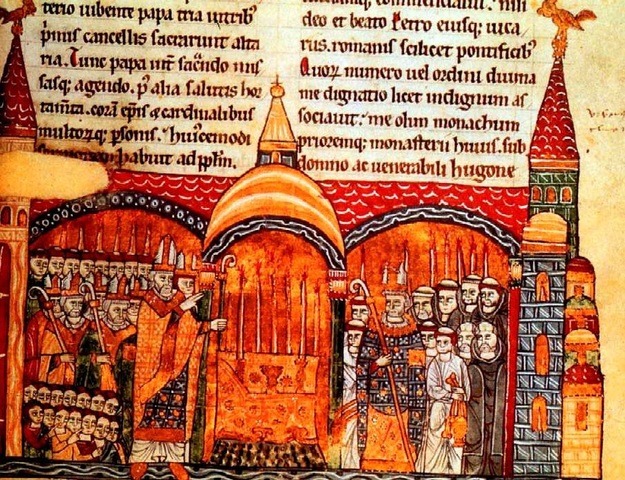 terio iubente papa tria in tribꝰ
primis cancellis sacrarunt alta
ria. Tunc papa int̄ sac̄ndo mis
sasq; agendo. p̄ alia salutis hor
tam̄ta. corā ep̄is & cardinalibus
multorq; p̱sonis. huiscemodi
habuit ad pp̄lm.
nisi
deo et beato Petro eiusq; uica
rus. romanis scilicet pontificibꝰ
Quoꝝ numero uel ordini diuina
me dignatio licet indignum as
sociauit: me olim monachum
prioremq; monasterii huius. sub
domno ac uenerabili hugone